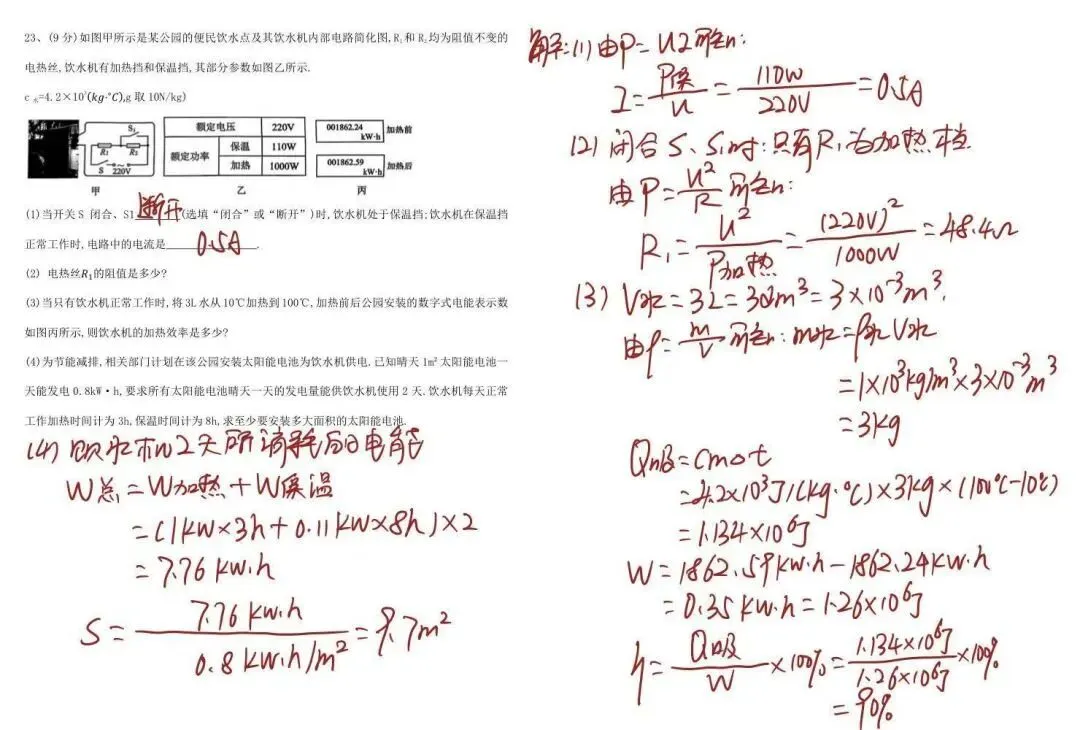 23、(9 分)如图甲所示是某公园的便民饮水点及其饮水机内部电路简化图,R₁和 R₂均为阻值不变的
电热丝,饮水机有加热挡和保温挡,其部分参数如图乙所示.
c 水=4.2×10³(kg·℃),g 取 10N/kg)
S₁
R₁ R₂
S 220V
甲
额定电压 220V
额定功率 保温 110W
加热 1000W
乙
001862.24 kW·h 加热前
001862.59 kW·h 加热后
丙
(1)当开关 S 闭合、S1 断开 (选填“闭合”或“断开”)时,饮水机处于保温挡;饮水机在保温挡
正常工作时,电路中的电流是 0.5A .
(2) 电热丝R₁的阻值是多少?
(3)当只有饮水机正常工作时,将 3L 水从 10℃加热到 100℃,加热前后公园安装的数字式电能表示数
如图丙所示,则饮水机的加热效率是多少?
(4)为节能减排,相关部门计划在该公园安装太阳能电池为饮水机供电.已知晴天 1m² 太阳能电池一
天能发电 0.8kW·h,要求所有太阳能电池晴天一天的发电量能供饮水机使用 2 天.饮水机每天正常
工作加热时间计为 3h,保温时间计为 8h,求至少要安装多大面积的太阳能电池.
(4) 饮水机2天所消耗的电能
W总=W加热+W保温
=(1kW×3h+0.11kW×8h)×2
=7.76 kW·h
S=7.76 kW·h/0.8 kW·h/m²=9.7m²
解:(1)由P=UI可知:
I=P保/U=110W/220V=0.5A
(2)闭合S、S₁时:只有R₁为加热档
由P=U²/R可知:
R₁=U²/P加热=(220V)²/1000W=48.4Ω
(3) V水=3L=3dm³=3×10⁻³m³,
由ρ=m/V可知:m水=ρ水V水
=1×10³kg/m³×3×10⁻³m³
=3kg
Q吸=cmΔt
=4.2×10³J/(kg·℃)×3kg×(100℃-10℃)
=1.134×10⁶J
W=1862.59kW·h-1862.24kW·h
=0.35kW·h=1.26×10⁶J
η=Q吸/W×100%=1.134×10⁶J/1.26×10⁶J×100%
=90%